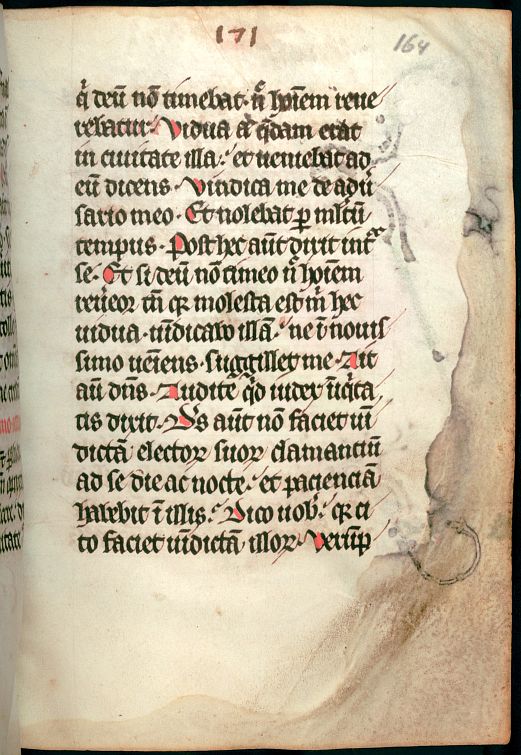 171
164
q̄ deū nō timebat · n̄ hōiem reue
rebatur · Vidua aū q̄dam erat
in ciuitate illa · et ueniebat ad
eū dicens · Vindica me de adū
sario meo · Et nolebat p̱ mltū
tempus · Post hec aūt dixit int̄
se · Et si deū nō timeo n̄ hōiem
reueor tn̄ qꝛ molesta est m̄ hec
uidua · uīdicabo illā · ne ī nouis
simo ueīens · suggillet me · Ait
aū dn̄s · Audite q̄d iudex īiq̄ta
tis dixit · Ds aūt nō faciet uī
dictā electoꝝ suoꝝ clamantiū
ad se die ac nocte · et pacienciā
habebit ī illis · Dico uob̄ · qꝛ ci
to faciet uīdictā illoꝝ · Verūp̄